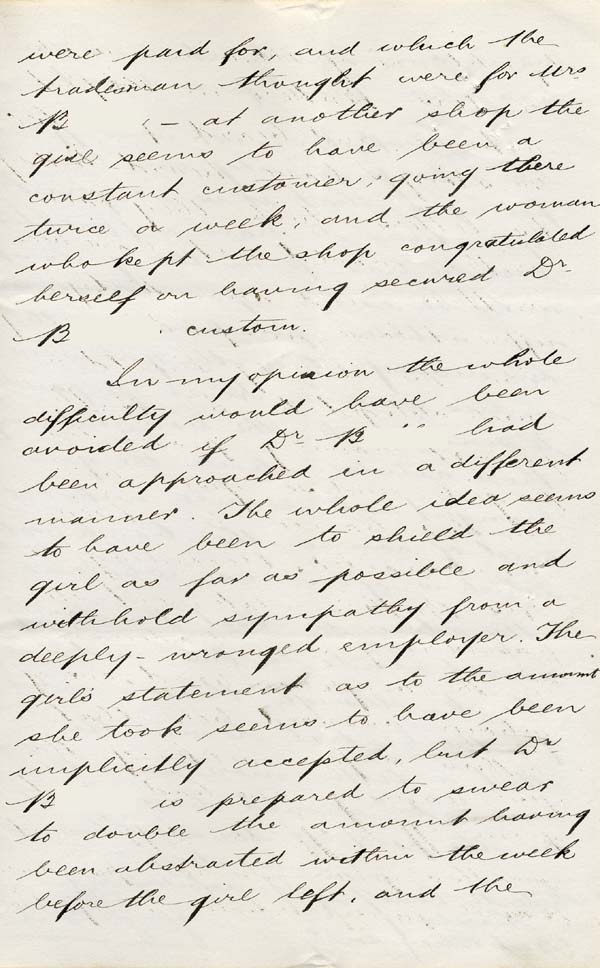 were paid for, and which the
tradesman thought were for Mrs
B : – at another shop the
girl seems to have been a
constant customer, going there
twice a week, and the woman
who kept the shop congratulated
herself on having secured Dr
B custom.
In my opinion the whole
difficulty would have been
avoided if Dr B " had
been approached in a different
manner. The whole idea seems
to have been to shield the
girl as far as possible and
withhold sympathy from a
deeply-wronged employer. The
girl's statement as to the amount
she took seems to have been
implicitly accepted, but Dr
B is prepared to swear
to double the amount having
been abstracted within the week
before the girl left, and the